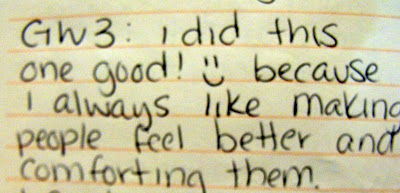 GW3: I did this
one good! ü because
I always like making
people feel better and
comforting them.